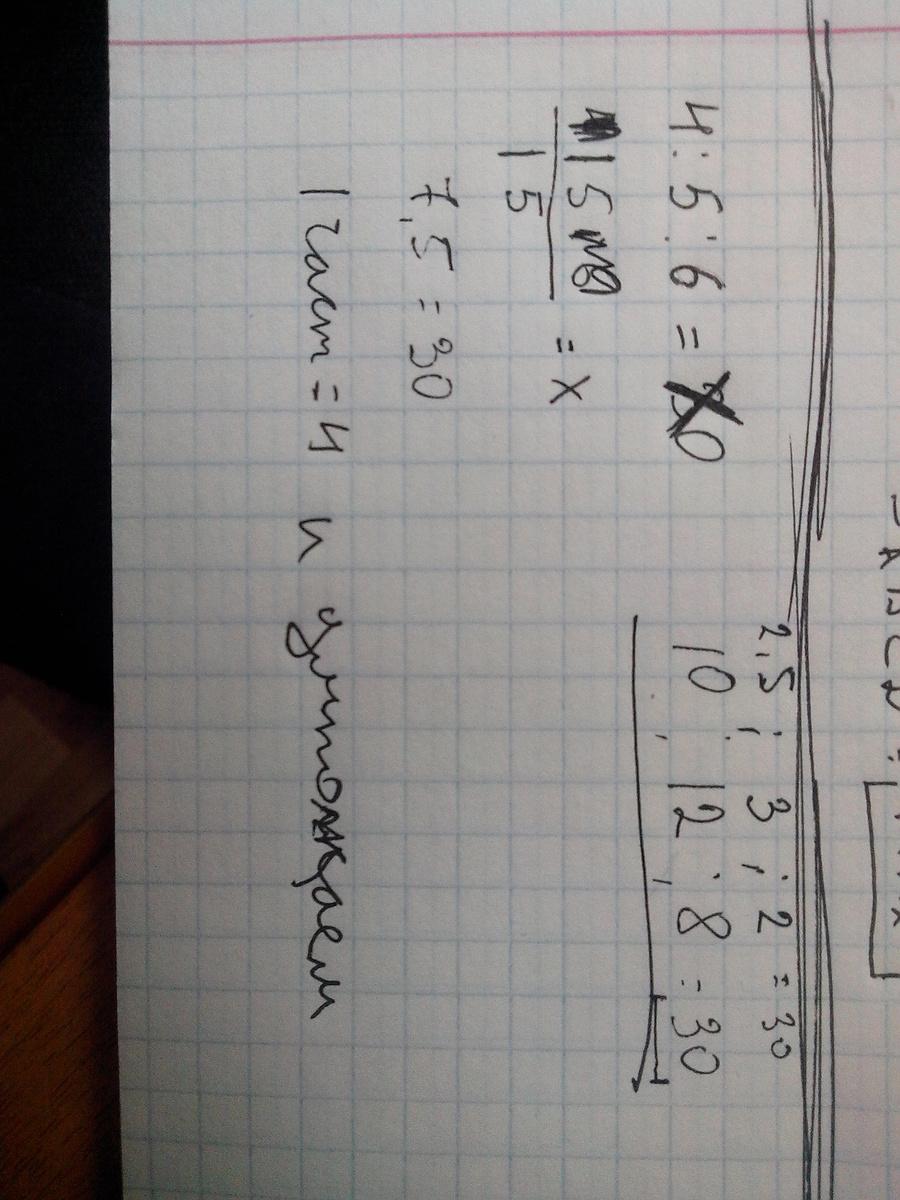 4:5:6 = X0
15 = x
15
7,5 = 30
1 част = 4 и умножаем
2,5 ; 3 ; 2 = 30
10 : 12 : 8 = 30